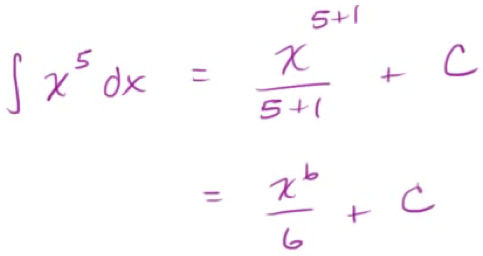 ∫ x⁵ dx = x⁵⁺¹/5+1 + C
= x⁶/6 + C